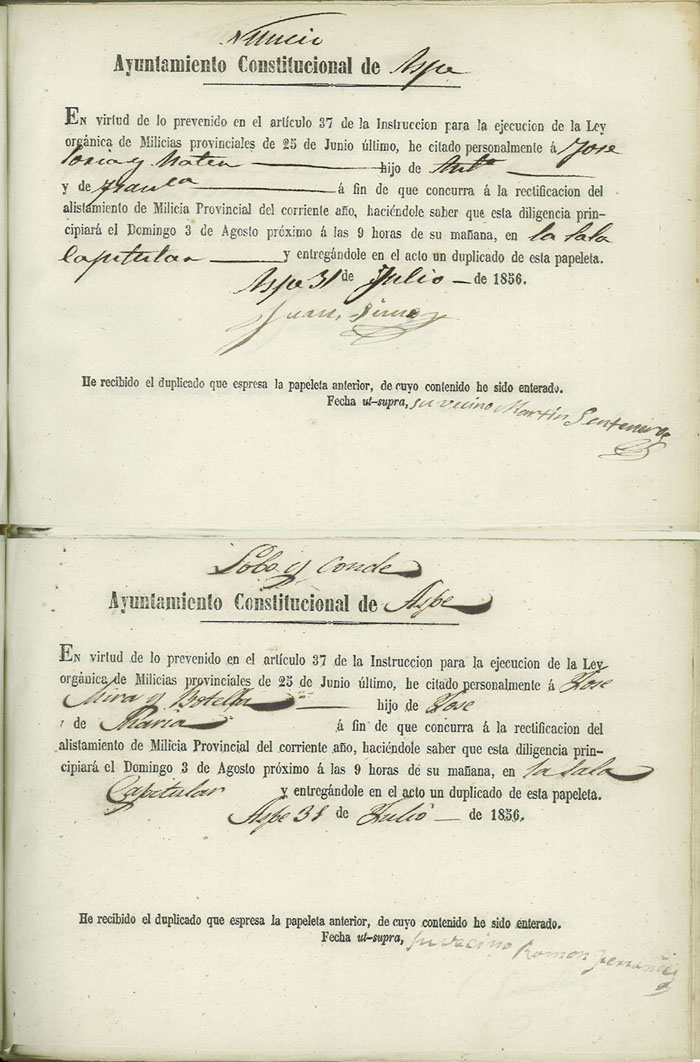 Nuncio
Ayuntamiento Constitucional de Aspe
En virtud de lo prevenido en el artículo 37 de la Instruccion para la ejecucion de la Ley
orgánica de Milicias provinciales de 25 de Junio último, he citado personalmente á Jose
Soria y Mateu hijo de Antº
y de Franca á fin de que concurra á la rectificacion del
alistamiento de Milicia Provincial del corriente año, haciéndole saber que esta diligencia prin-
cipiará el Domingo 3 de Agosto próximo á las 9 horas de su mañana, en la Sala
Capitular y entregándole en el acto un duplicado de esta papeleta.
Aspe 31 de Julio de 1856.
Juan
He recibido el duplicado que espresa la papeleta anterior, de cuyo contenido he sido enterado.
Fecha ut-supra, su vecino Martin
Lobo y Conde
Ayuntamiento Constitucional de Aspe
En virtud de lo prevenido en el artículo 37 de la Instruccion para la ejecucion de la Ley
orgánica de Milicias provinciales de 25 de Junio último, he citado personalmente á Jose
Mira y Botella hijo de Jose
de Maria á fin de que concurra á la rectificacion del
alistamiento de Milicia Provincial del corriente año, haciéndole saber que esta diligencia prin-
cipiará el Domingo 3 de Agosto próximo á las 9 horas de su mañana, en la Sala
Capitular y entregándole en el acto un duplicado de esta papeleta.
Aspe 31 de Julio de 1856.
He recibido el duplicado que espresa la papeleta anterior, de cuyo contenido he sido enterado.
Fecha ut-supra, su vecino Ramon